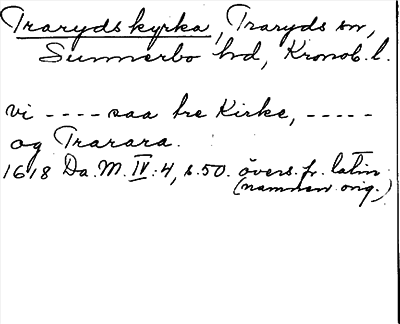 Traryds kyrka, Traryds sn,
Sunnerbo hd, Kronob. l.
vi ---- saa tre Kirke, -----
og Trarara.
1618 Da. M. IV:4, s. 50. övers. fr. latin
(namnen orig.)